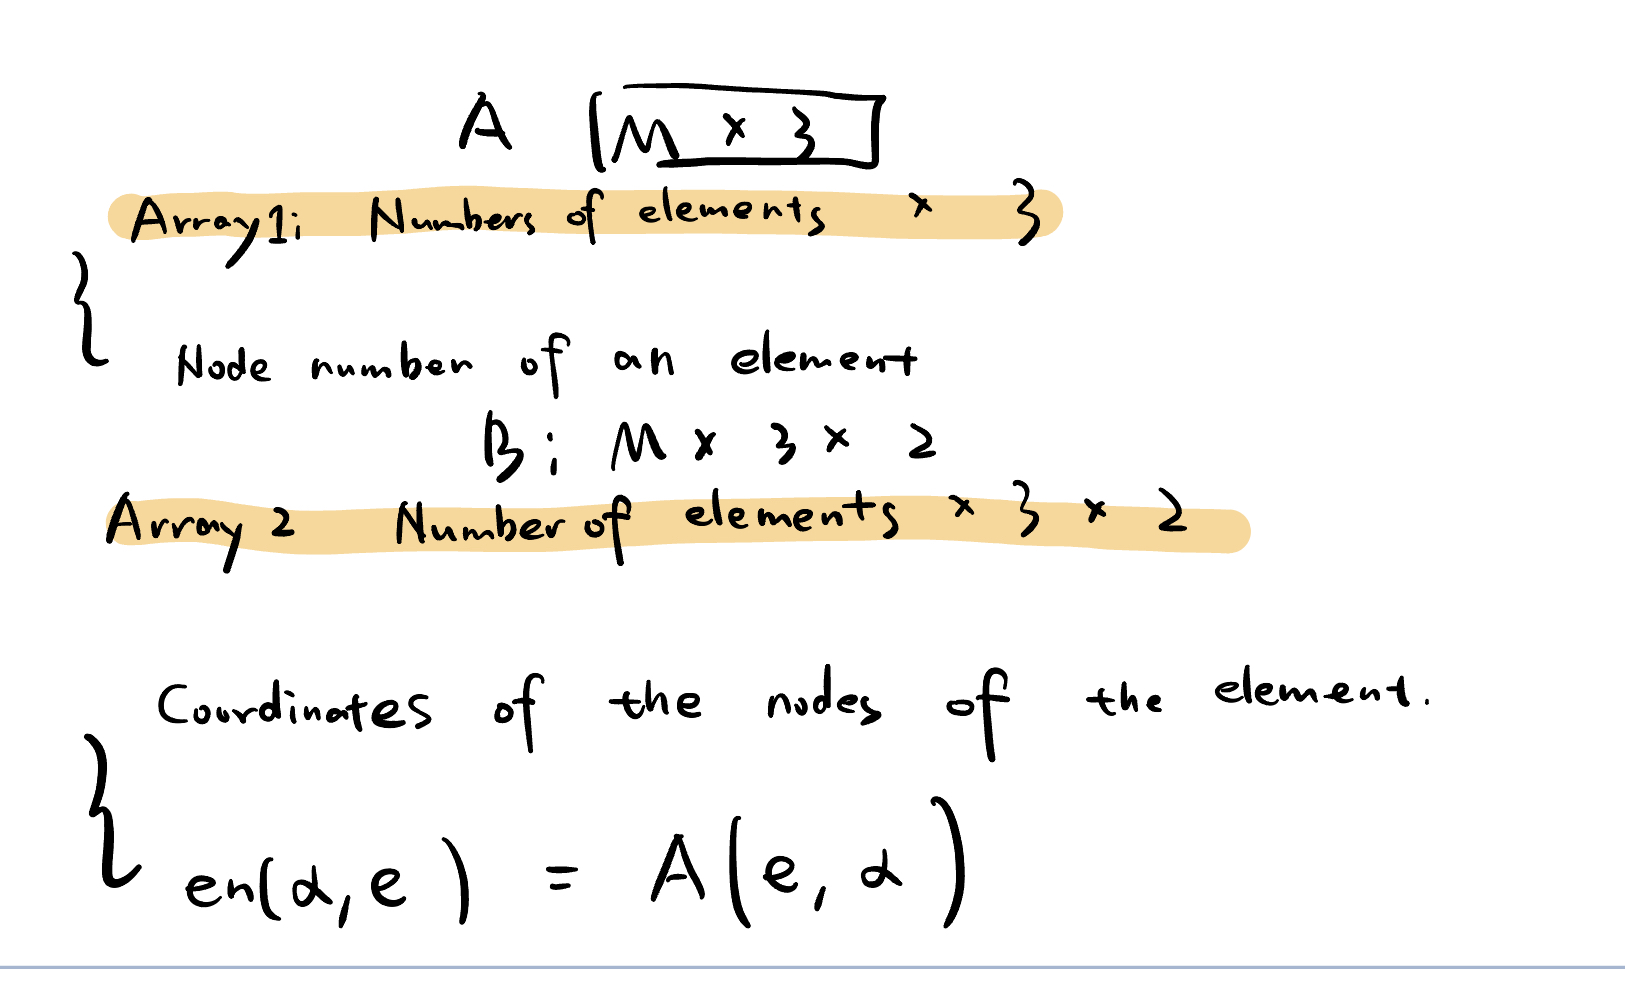 A [M × 3]
Array1: Numbers of elements × 3
Node number of an element
B: M × 3 × 2
Array 2 Number of elements × 3 × 2
Coordinates of the nodes of the element.
en(α, e) = A(e, α)